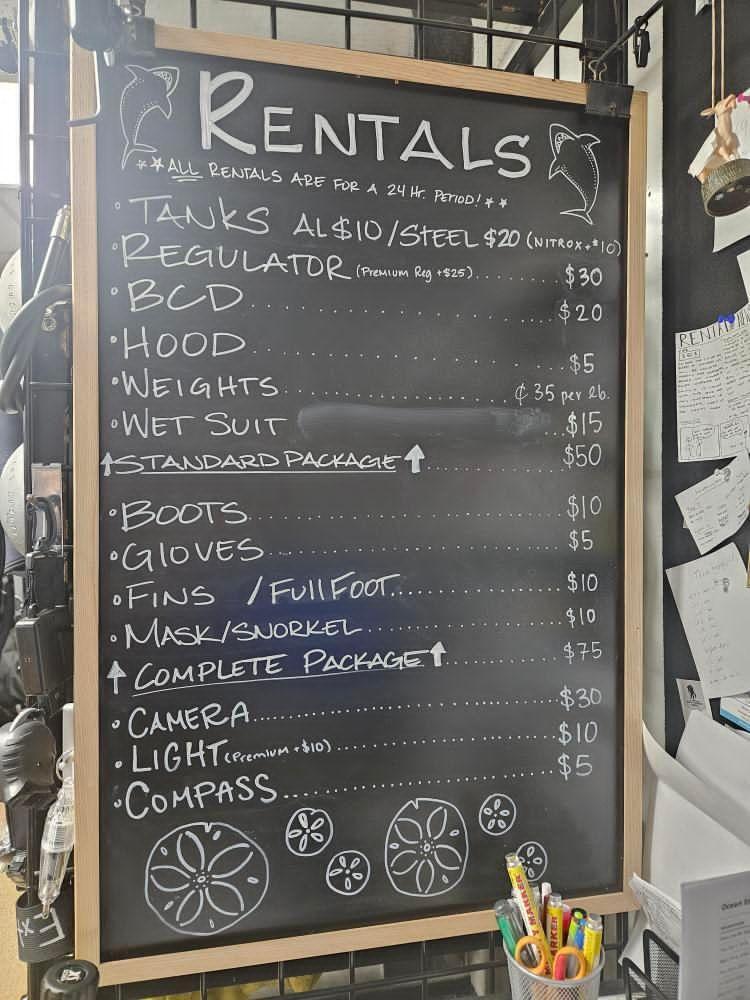 RENTALS
**ALL RENTALS ARE FOR A 24 Hr. PERIOD!**
• TANKS AL $10 / STEEL $20 (NITROX + $10)
• REGULATOR (Premium Reg +$25)....... $30
• BCD................................ $20
• HOOD............................... $5
• WEIGHTS............................ ¢ 35 per lb.
• WET SUIT ... $15
↑ STANDARD PACKAGE ↑............ $50
• BOOTS............................. $10
• GLOVES............................ $5
• FINS / Full FOOT.................. $10
• MASK/SNORKEL...................... $10
↑ COMPLETE PACKAGE ↑............ $75
• CAMERA............................ $30
• LIGHT (Premium +$10).............. $10
• COMPASS........................... $5
MARKER
MARKER